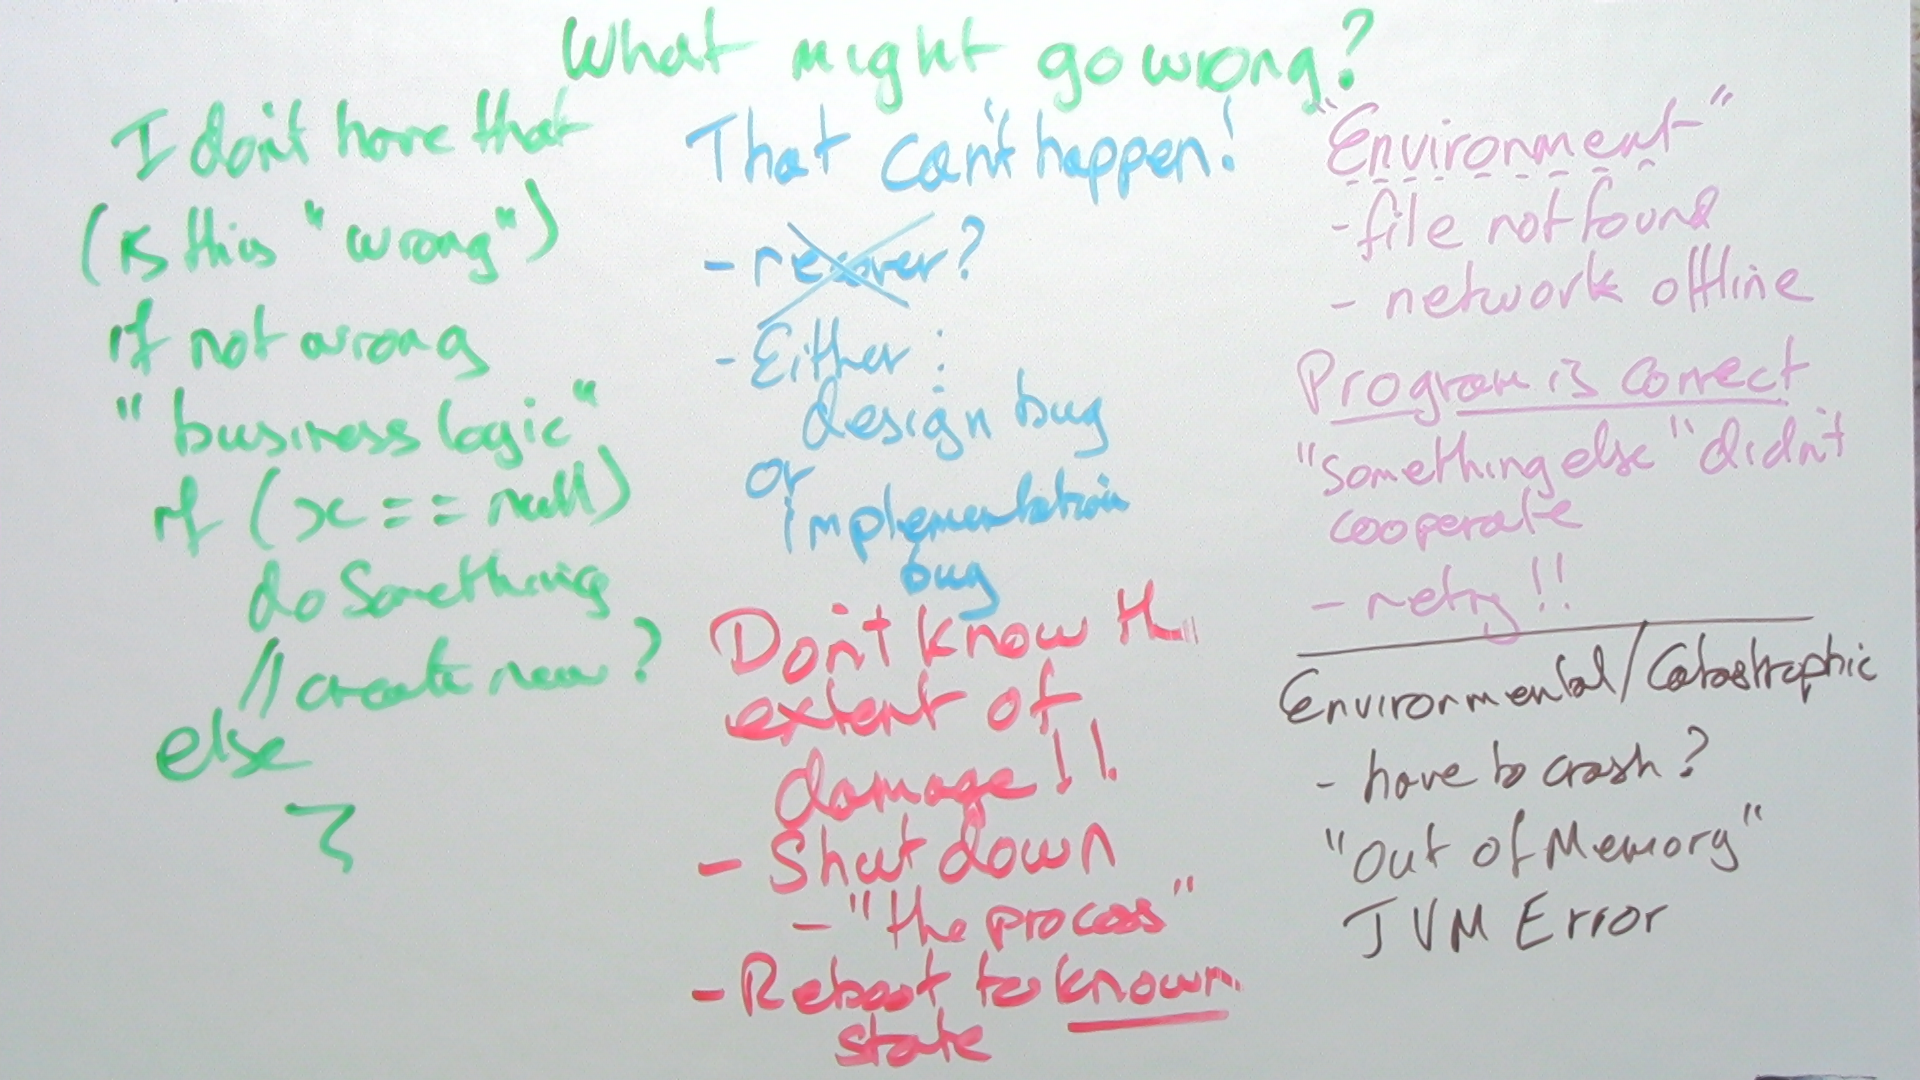 What might go wrong?
I don't have that
(is this "wrong")
if not wrong
"business logic"
if (x == null)
do Something
// create new?
else
}
That can't happen!
- recover?
- Either :
design bug
or
implementation
bug
Don't know th
extent of
damage!!
- Shut down
- "the process"
- Reboot to known
state
"Environment"
- file not found
- network offline
Program is correct
"something else" didn't
cooperate
- retry!!
Environmental/Catastrophic
- have to crash?
"Out of Memory"
JVM Error